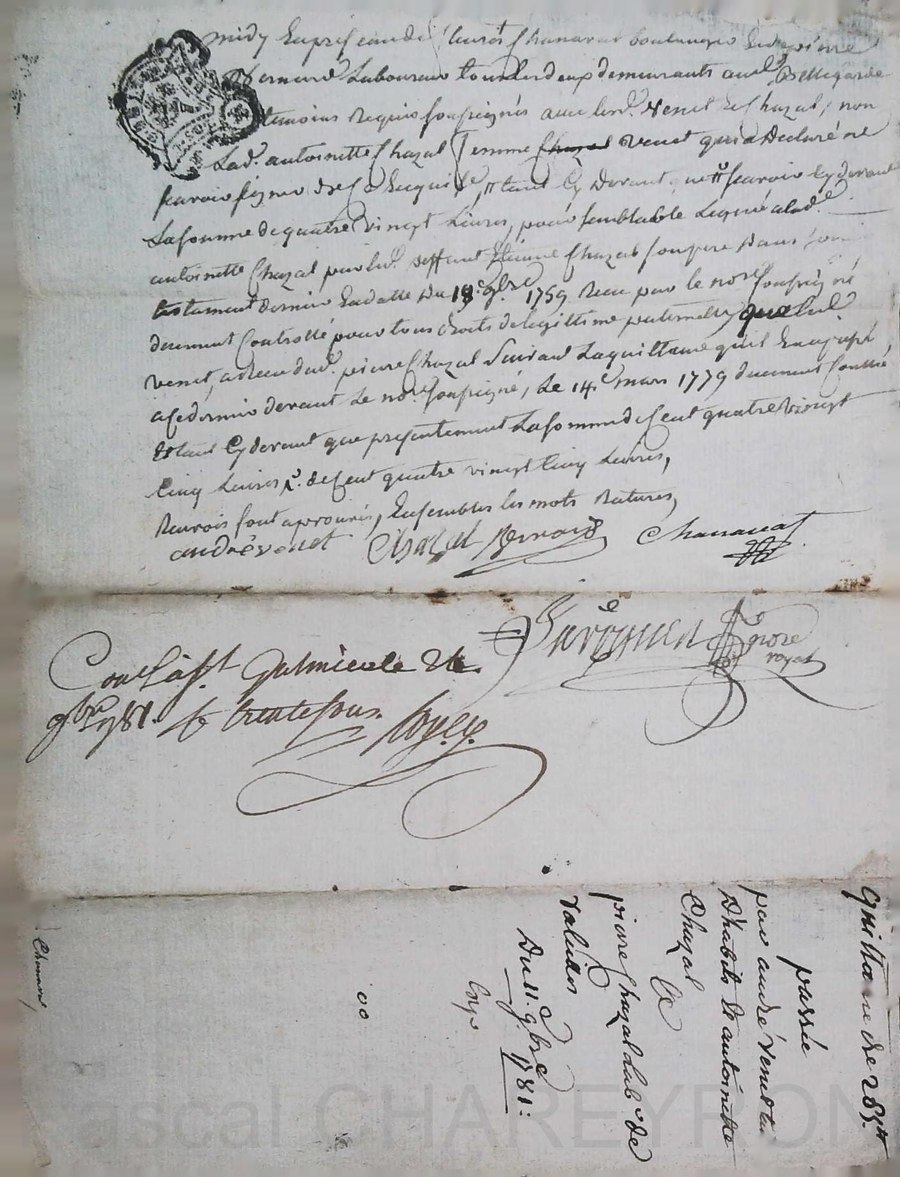 midy En presence de Chanavat boulanger Et de pierre
Bernard Laboureur tous les deux demeurants audt Bellegarde
temoins Requis soussignés avec lesd. Venet Et Chazal, non
Lad. antoinette Chazal femme Chazal Venet qui a Declaré ne
scavoir signer de ce Enquise, tant Cy Devant
La somme de quatre vingt Livres, pour semblable Legué a lad.
antoinette Chazal par led. deffunt Etienne Chazal son pere Dans son
testament dernier En datte Du 18e 9bre 1759 Receu par le nore soussigné
deuement Controllé pour tous droits de legittime paternelle, que led.
Venet, a Receu dud. pierre Chazal Suivant La quittance qu'il En a passé,
a ce dernier devant Le nore soussigné, Le 14e mars 1779 duement Controllé
Et tant Cy devant que presentement La somme de Cent quatre vingt
Cinq Livres de Cent quatre vingt Cinq Livres,
Renvois sont approuvés, Ensembles les mots Raturés,
andré venet Chazal Bernard Chanavat
nore
royal
Conlé a St Galmier le
9bre 1781. R trente sous
quittance de 285tt
passée
par andré Venet tu
D'habits Et antoinette
Chazal
a
pierre Chazal Lab. de
Du 11. 9bre 1781:
Exps
00
Chanavat
Pascal CHAREYRON